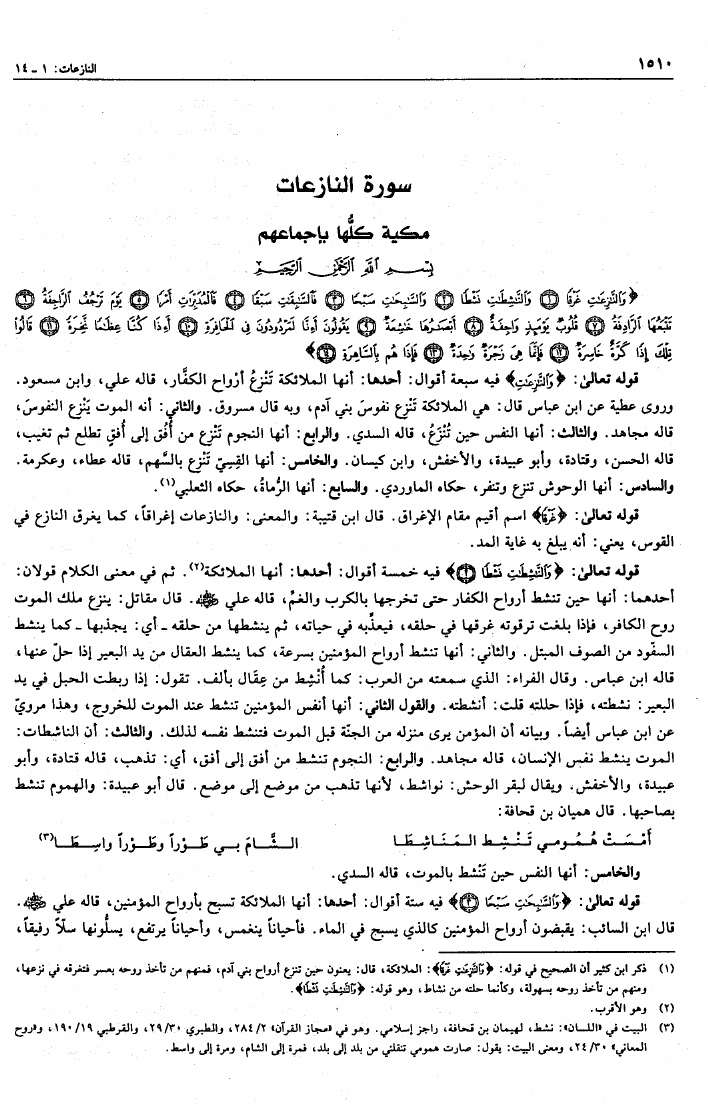 ١٥١٠
النازعات: ١ ـ ١٤
سورة النازعات
مكية كلُّها بإجماعهم
بِسْمِ اللَّهِ الرَّحْمَٰنِ الرَّحِيمِ
﴿وَالنَّزِعَتِ غَرْقًا ١ وَالنَّشِطَتِ نَشْطًا ٢ وَالسَّبِحَتِ سَبْحًا ٣ فَالسَّبِقَتِ سَبْقًا ٤ فَالْمُدَبِّرَتِ أَمْرًا ٥ يَوْمَ تَرْجُفُ الرَّاجِفَةُ ٦
تَتْبَعُهَا الرَّادِفَةُ ٧ قُلُوبٌ يَوْمَئِذٍ وَاجِفَةٌ ٨ أَبْصَرُهَا خَشِعَةٌ ٩ يَقُولُونَ أَءِنَّا لَمَرْدُودُونَ فِي الْحَافِرَةِ ١٠ أَءِذَا كُنَّا عِظَمًا نَّخِرَةً ١١ قَالُوا
تِلْكَ إِذًا كَرَّةٌ خَاسِرَةٌ ١٢ فَإِنَّمَا هِيَ زَجْرَةٌ وَحِدَةٌ ١٣ فَإِذَا هُم بِالسَّاهِرَةِ ١٤﴾
قوله تعالىٰ: ﴿وَالنَّزِعَتِ﴾ فيه سبعة أقوال: أحدها: أنها الملائكة تَنْزِعُ أرْواح الكفَّار، قاله علي، وابن مسعود.
وروى عطية عن ابن عباس قال: هي الملائكة تَنزِع نفوسَ بني آدم، وبه قال مسروق. والثاني: أنه الموت يَنْزِع النفوسَ،
قاله مجاهد. والثالث: أنها النفس حين تُنْزَعُ، قاله السدي. والرابع: أنها النجوم تَنْزِع من أُفُق إلى أُفقٍ تطلع ثم تغيب،
قاله الحسن، وقتادة، وأبو عبيدة، والأخفش، وابن كيسان. والخامس: أنها القِسِيّ تَنْزِع بالسَّهم، قاله عطاء، وعكرمة.
والسادس: أنها الوحوش تنزع وتنفر، حكاه الماوردي. والسابع: أنها الرُّماةُ، حكاه الثعلبي(١).
قوله تعالىٰ: ﴿غَرْقًا﴾ اسم أقيم مقام الإغراق. قال ابن قتيبة: والمعنى: والنازعات إغراقاً، كما يغرق النازع في
القوس، يعني: أنه يبلغ به غاية المد.
قوله تعالىٰ: ﴿وَالنَّشِطَتِ نَشْطًا ٢﴾ فيه خمسة أقوال: أحدها: أنها الملائكة(٢). ثم في معنى الكلام قولان:
أحدهما: أنها حين تنشط أرواح الكفار حتى تخرجها بالكرب والغمِّ، قاله علي ﷺ. قال مقاتل: ينزع ملك الموت
روح الكافر، فإذا بلغت ترقوته غرقها في حلقه، فيعذِّبه في حياته، ثم ينشطها من حلقه ـ أي: يجذبها ـ كما ينشط
السفّود من الصوف المبتل. والثاني: أنها تنشط أرواح المؤمنين بسرعة، كما ينشط العقال من يد البعير إذا حلّ عنها،
قاله ابن عباس. وقال الفراء: الذي سمعته من العرب: كما أُنْشِط من عِقَال بألف. تقول: إذا ربطت الحبل في يد
البعير: نشطته، فإذا حللته قلت: أنشطته. والقول الثاني: أنها أنفس المؤمنين تنشط عند الموت للخروج، وهذا مرويّ
عن ابن عباس أيضاً. وبيانه أن المؤمن يرى منزله من الجنّة قبل الموت فتنشط نفسه لذلك. والثالث: أن الناشطات:
الموت ينشط نفس الإنسان، قاله مجاهد. والرابع: النجوم تنشط من أفق إلى أفق، أي: تذهب، قاله قتادة، وأبو
عبيدة، والأخفش. ويقال لبقر الوحش: نواشط، لأنها تذهب من موضع إلى موضع. قال أبو عبيدة: والهموم تنشط
بصاحبها. قال هميان بن قحافة:
أَمْسَتْ هُمُومي تَنْشِط المَنَاشِطَا الشَّامَ بي طَوْراً وطَوْراً واسِطَا(٣)
والخامس: أنها النفس حين تَنْشط بالموت، قاله السدي.
قوله تعالىٰ: ﴿وَالسَّبِحَتِ سَبْحًا ٣﴾ فيه ستة أقوال: أحدها: أنها الملائكة تسبح بأرواح المؤمنين، قاله علي ﷺ.
قال ابن السائب: يقبضون أرواح المؤمنين كالذي يسبح في الماء. فأحياناً ينغمس، وأحياناً يرتفع، يسلُّونها سلاًّ رفيقاً،
(١) ذكر ابن كثير أن الصحيح في قوله: ﴿وَالنَّزِعَتِ غَرْقًا﴾: الملائكة، قال: يعنون حين تنزع أرواح بني آدم، فمنهم من تأخذ روحه بعسر فتغرقه في نزعها،
ومنهم من تأخذ روحه بسهولة، وكأنما حلته من نشاط، وهو قوله: ﴿وَالنَّشِطَتِ نَشْطًا﴾.
(٢) وهو الأقرب.
(٣) البيت في «اللسان»: نشط، لهيمان بن قحافة، راجز إسلامي. وهو في «مجاز القرآن» ٢/ ٢٨٤، والطبري ٣٠/ ٢٩، والقرطبي ١٩/ ١٩٠، و«روح
المعاني» ٣٠/ ٢٤، ومعنى البيت: يقول: صارت همومي تنقلني من بلد إلى بلد، فمرة إلى الشام، ومرة إلى واسط.